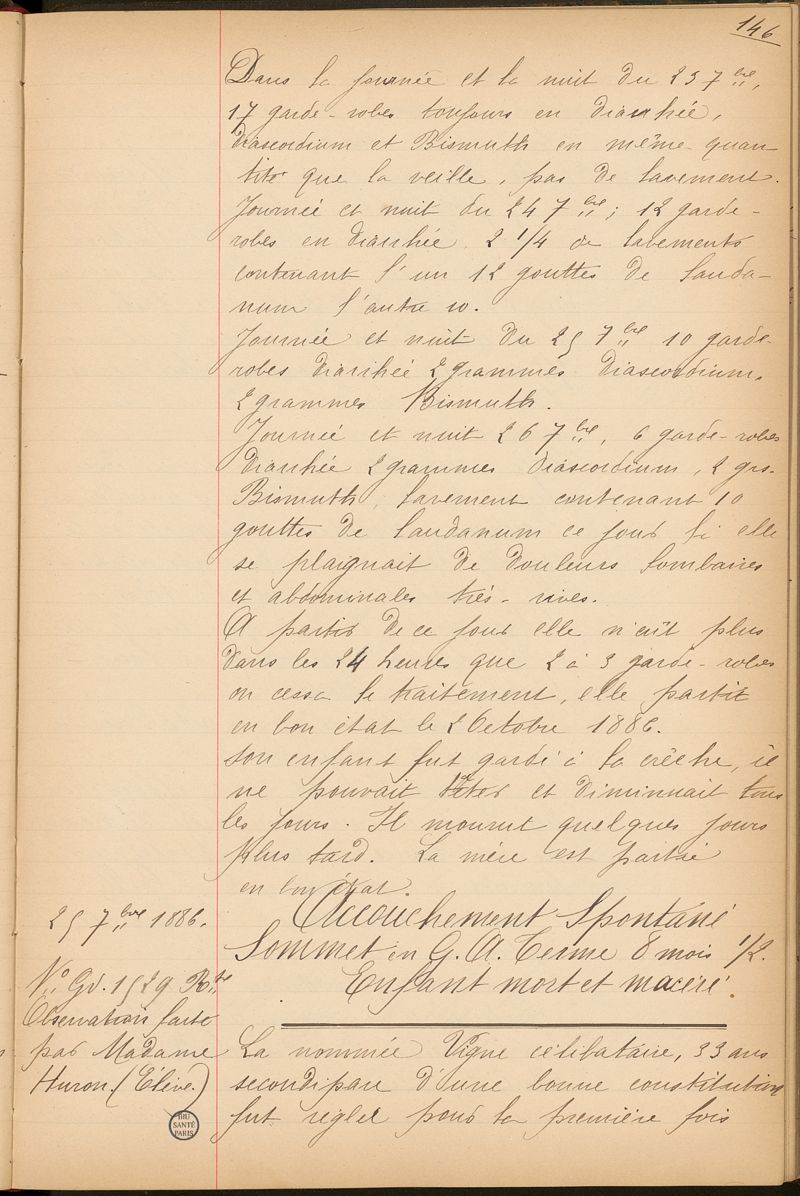 146
Dans la journée et la nuit du 23 7bre,
17 garde-robes toujours en diarrhée,
diascordium et Bismuth en même quan
tité que la veille, pas de lavement.
Journée et nuit du 24 7bre; 12 garde-
robes en diarrhée 2 1/4 de lavements
contenant l'un 12 gouttes de lauda-
num l'autre 10.
Journée et nuit du 25 7bre 10 garde-
robes diarrhée 2 grammes diascordium,
2 grammes Bismuth.
Journée et nuit 26 7bre, 6 garde-robes
diarrhée 2 grammes diascordium, 2 grs
Bismuth, lavement contenant 10
gouttes de laudanum ce jour là elle
se plaignait de douleurs lombaires
et abdominales très-vives.
A partir de ce jour elle n'eût plus
dans les 24 heures que 2 à 3 garde-robes
on cessa le traitement, elle partit
en bon état le 2 Octobre 1886.
Son enfant fut gardé à la crèche, il
ne pouvait têter et diminuait tous
les jours. Il mourut quelques jours
plus tard. La mère est partie
en bon état.
25 7bre 1886.
Accouchement Spontané
Sommet en G. A. Terme 8 mois 1/2.
Enfant mort et macéré.
No Gd. 1529 Rte
Observation faite
par Madame
Huron (Élève)
La nommée Vigne célibataire, 33 ans
secondipare d'une bonne constitution
fut réglée pour la première fois
BIU
SANTÉ
PARIS